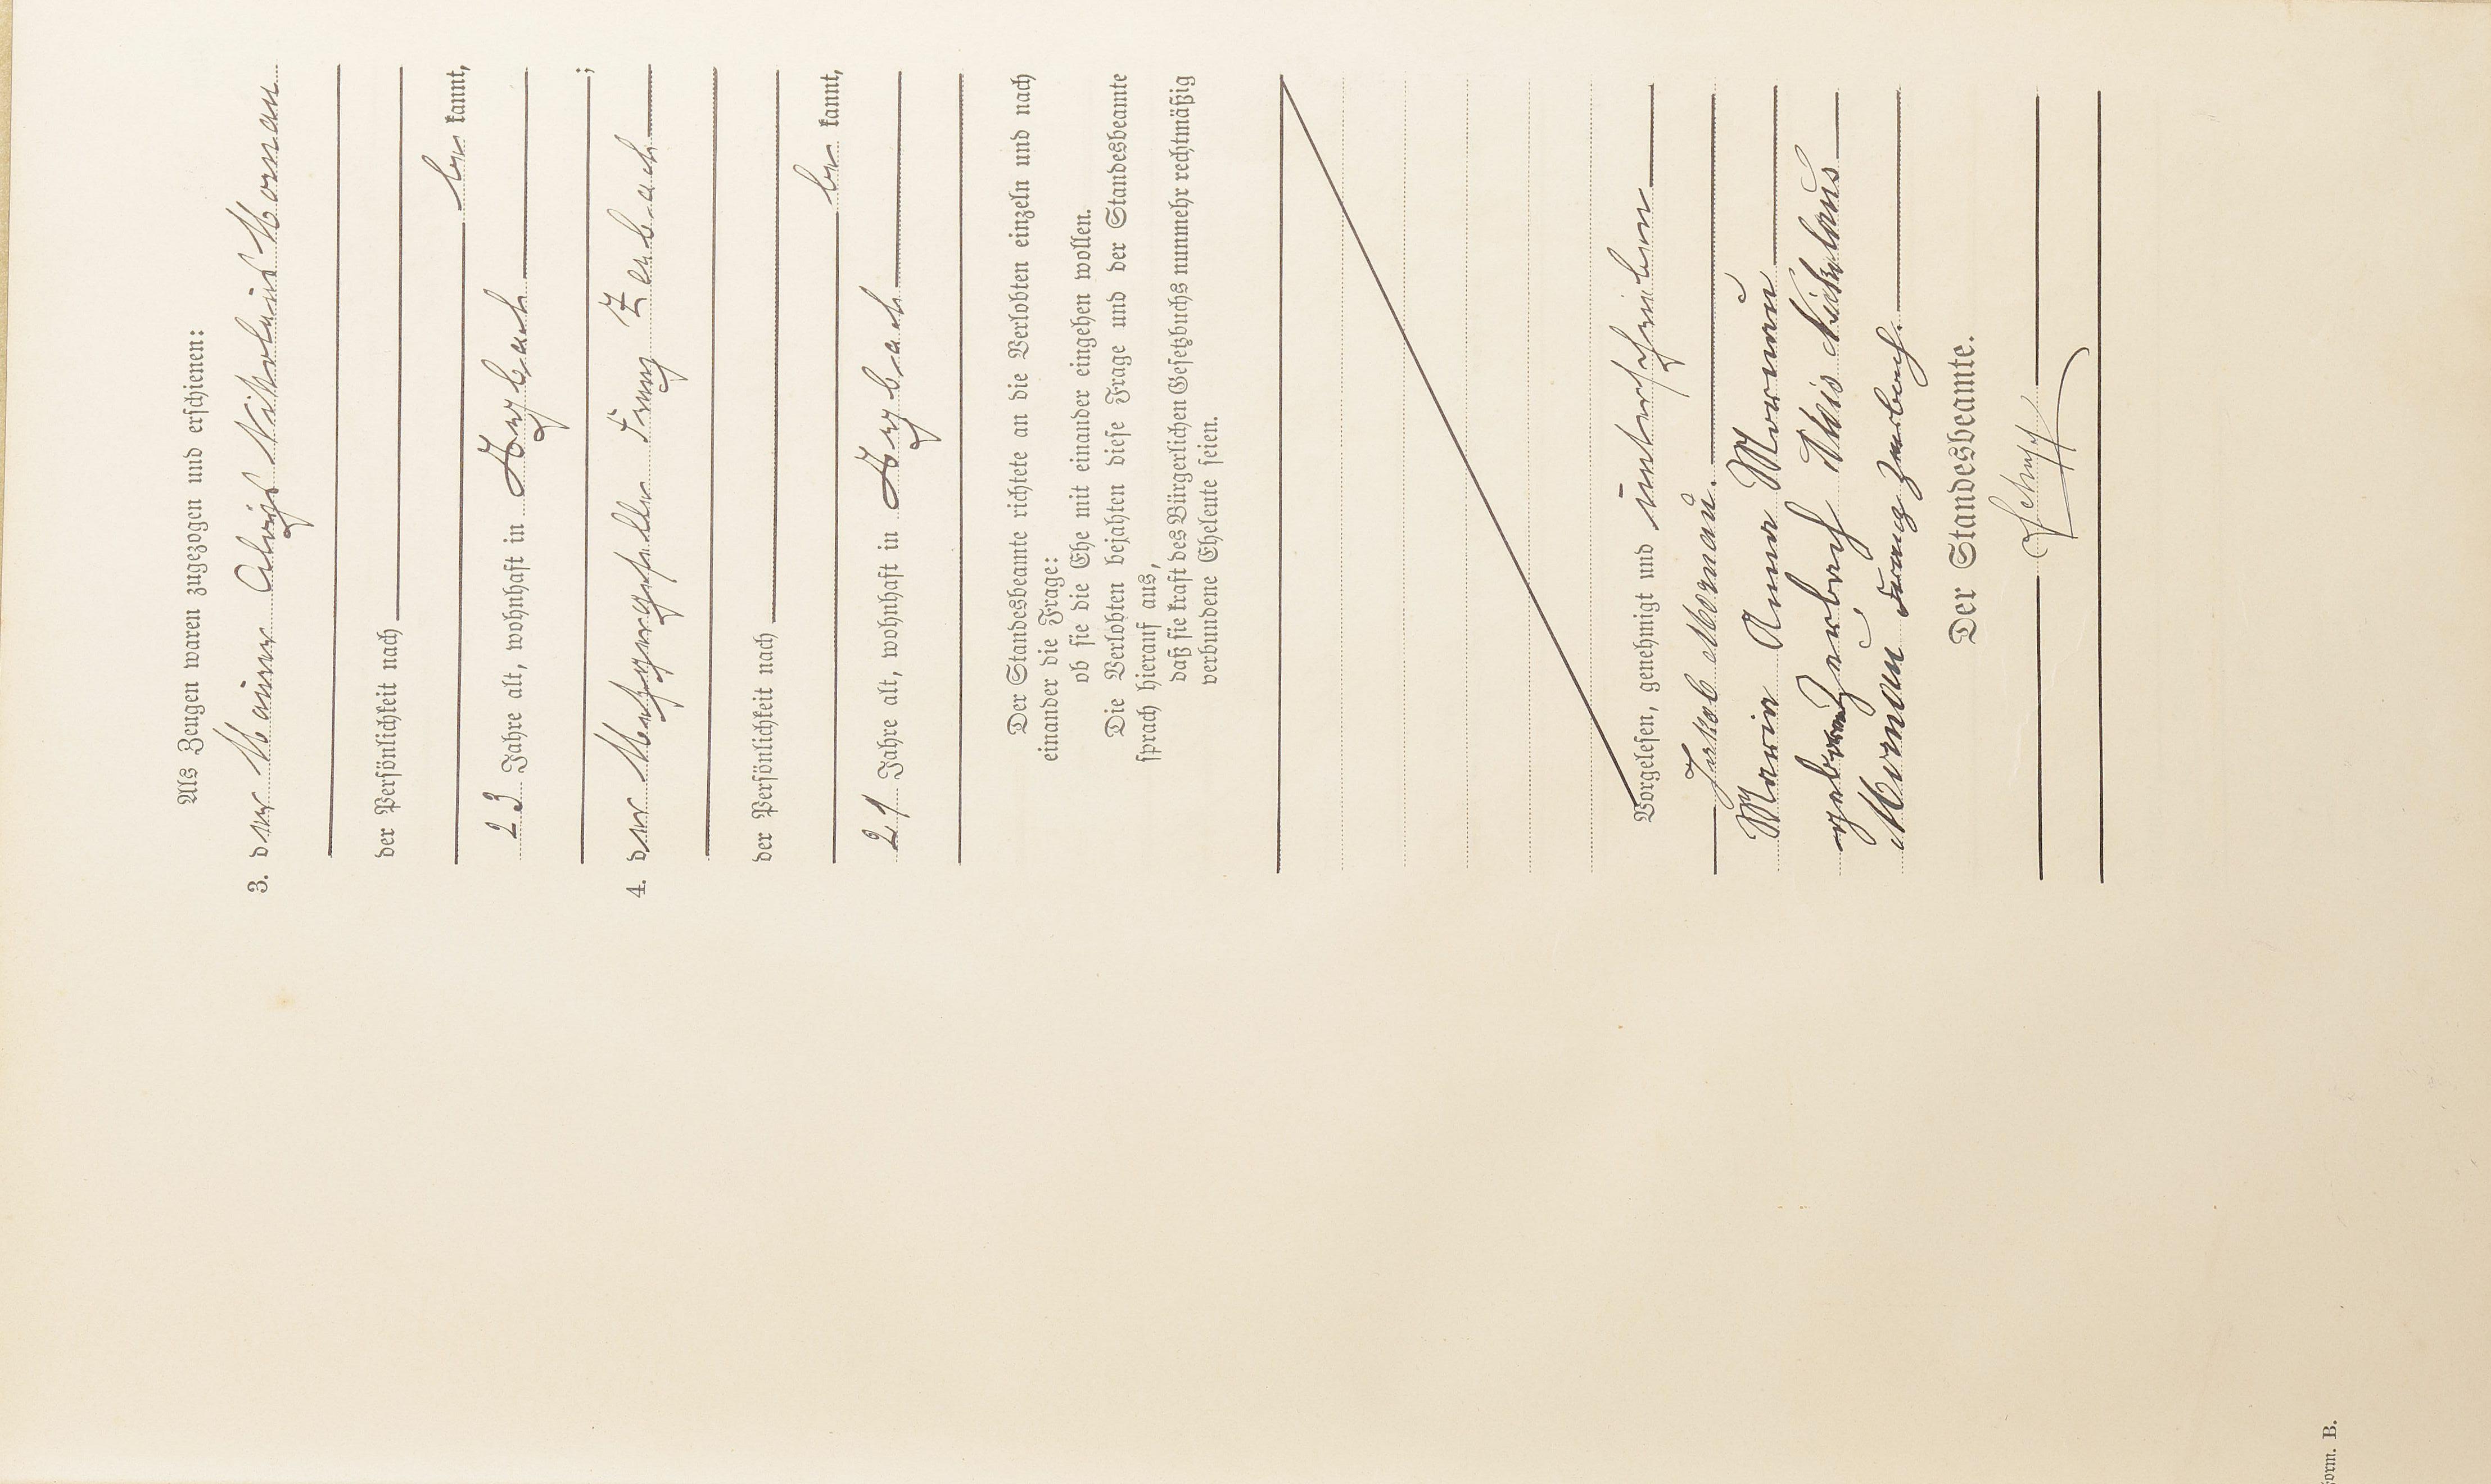 Als Zeugen waren zugezogen und erschienen:
3. der Maurer Alois Nikolaus Mornau
der Persönlichkeit nach
be kannt,
23 Jahre alt, wohnhaft in Asbach
;
4. der Metzgergeselle Franz Zerbach
der Persönlichkeit nach
be kannt,
21 Jahre alt, wohnhaft in Asbach
Der Standesbeamte richtete an die Verlobten einzeln und nach
einander die Frage:
ob sie die Ehe mit einander eingehen wollen.
Die Verlobten bejahten diese Frage und der Standesbeamte
sprach hierauf aus,
daß sie kraft des Bürgerlichen Gesetzbuchs nunmehr rechtmäßig
verbundene Eheleute seien.
Vorgelesen, genehmigt und unterschrieben
Jakob Mornau.
Maria Anna Mornau
geborene Zerbach Alois Nickolaus
Mornau Franz Zerbach.
Der Standesbeamte.
Form. B.